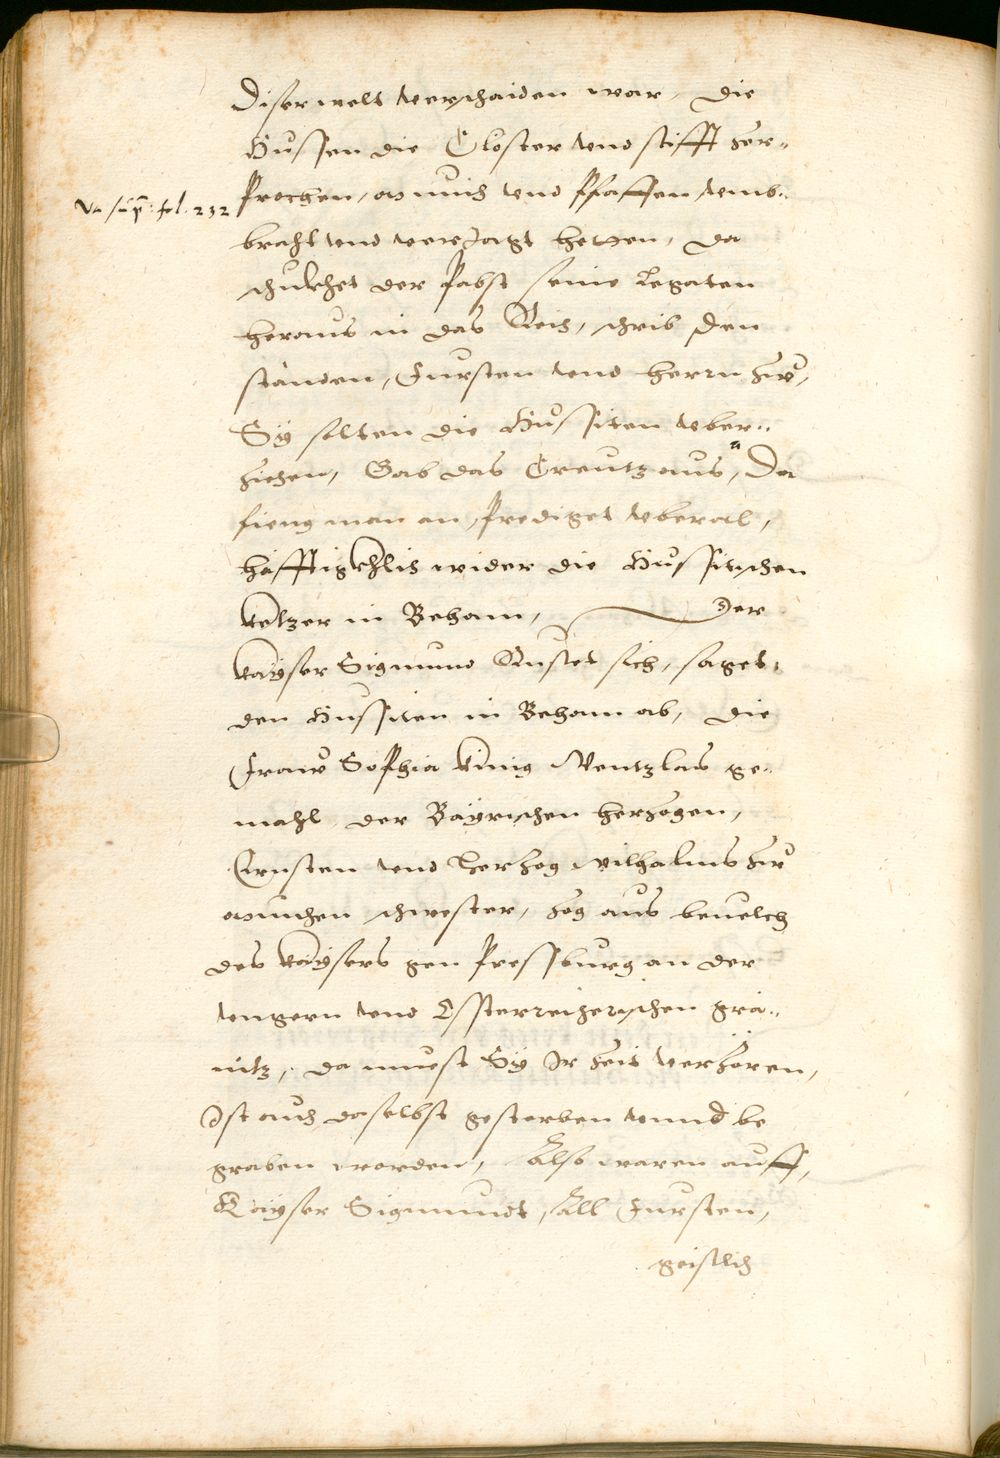 Diser welt verschaiden war, die
Hussen die Closter vnd stifft zer-
prochen, münich vnd Pfaffen vmb-
Vt supra: fol. 232
bracht vnd veriagt hetten, da
schickhet der Pabst seine Legaten
heraus in das Reich, schrib den
ständen, Fürsten vnd herrn zue,
Sy solten die Hussiten vber-
ziehen, Gab das Creutz aus, Da
fieng man an, Prediget vberal,
häfftigkhlich wider die Hussitischen
ketzer in Beham, Der
kayser Sigmund Rüstet sich, saget,
den Hussiten in Beham ab, Die
Fraw Sophia künig Wentzlas ge-
mahl der Bayrischen herzogen,
Ernsten vnd Herzog Wilhalms zue
München schwester, zog aus beuelch
des kaysers gen Pressburg an der
vngern vnd Össterreicherischen grä-
nitz, da muest Sy Ir zeit verzören,
Ist auch daselbst gestorben vnnd be
graben worden, Also waren auff,
Kayser Sigmundt, All Fürsten,
geistlich